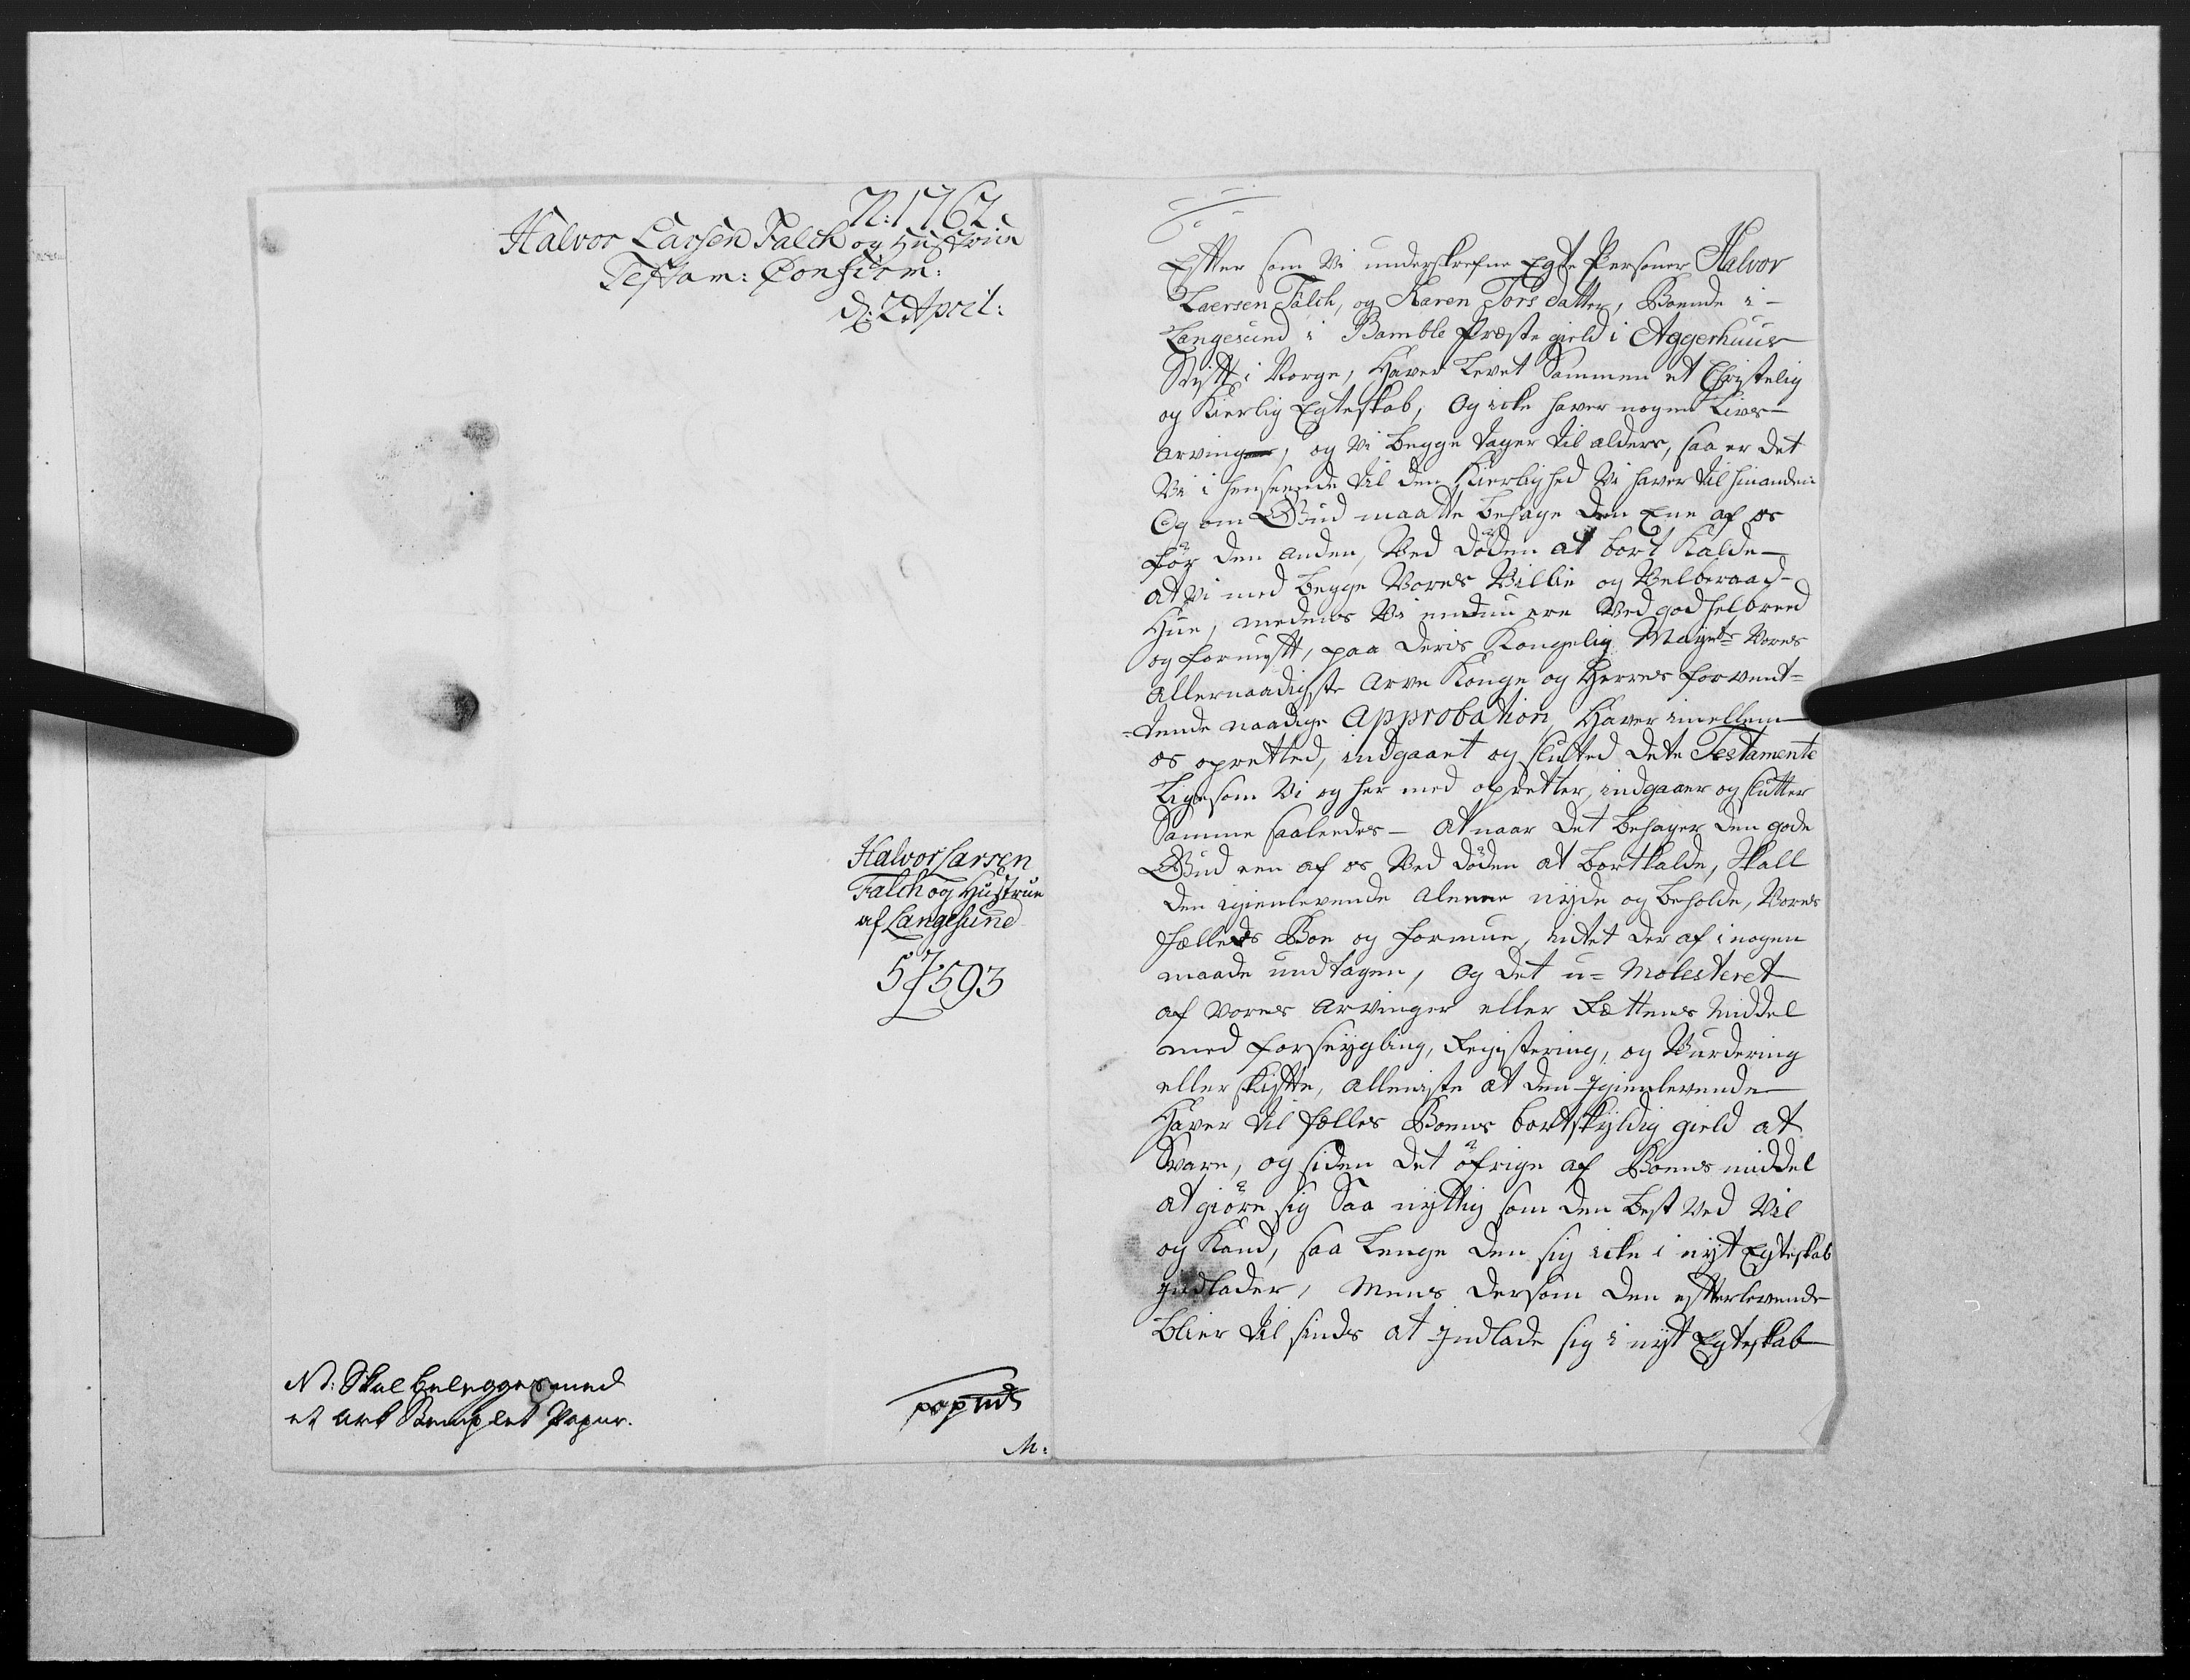 A: 1762
Halvor Larsen Falch og Hustrue
Testam: Confirm:
d: 2 April:
Halvor Larsen
Falch og Hustrue
af Langesund
593
Nb: Skal belegges med
et Ark Stemplet Papiir.
M:
Efter som Vi underskrefne Egte Personer Halvor
Laersen Falch, og Karen Tors datter, Boende i
Langesund i Bamble Præste gield i Aggerhuus
Stift i Norge, Haver Levet Sammen et Christelig
og Kierlig Egteskab, Og icke haver nogen Livs
Arvinger, og Vi begge tager til alders, saa er det
Vi i henseende til den Kierlighed Vi haver til hinanden
Og om Gud maatte behage den Ene af os
før den anden, Ved døden at bort Kalde
at Vi med begge Vores Villie og Velberaad
Hue, medens Vi endnu ere Ved god helbreed
og fornuft, paa deris Kongelig Mayts Vores
Allernaadigste Arve Konge og Herres forvent=
=tende naadige Approbation, Haver imellem
os opretted, indgaaet og slutted dete Testamente
Ligesom Vi og her med opretter, indgaaer og slutter
Samme saaleedes - At naar det behager den gode
Gud een af os Ved døden at bortkalde, Skall
den igienlevende alene nyde og beholde, Vores
fælleds Boe og formue, intet der af i nogen
maade undtagen, og det u=Molesteret
af Vores Arvinger eller Rættens Middel
med forseigling, Registering, og Vurdering
eller skifte, alleniste at den Igienlevende
Haver til fælles Boens bortskyldig gield at
Svare, og siden det øfrige af Boens middel
at giøre sig Saa nyttig som den best Ved Vil
og Kand, saa Lenge den sig icke i nyt Egteskab
Indlader, Mens dersom den efterlevende
blier til sinds at Indlade sig i nyt Egteskab